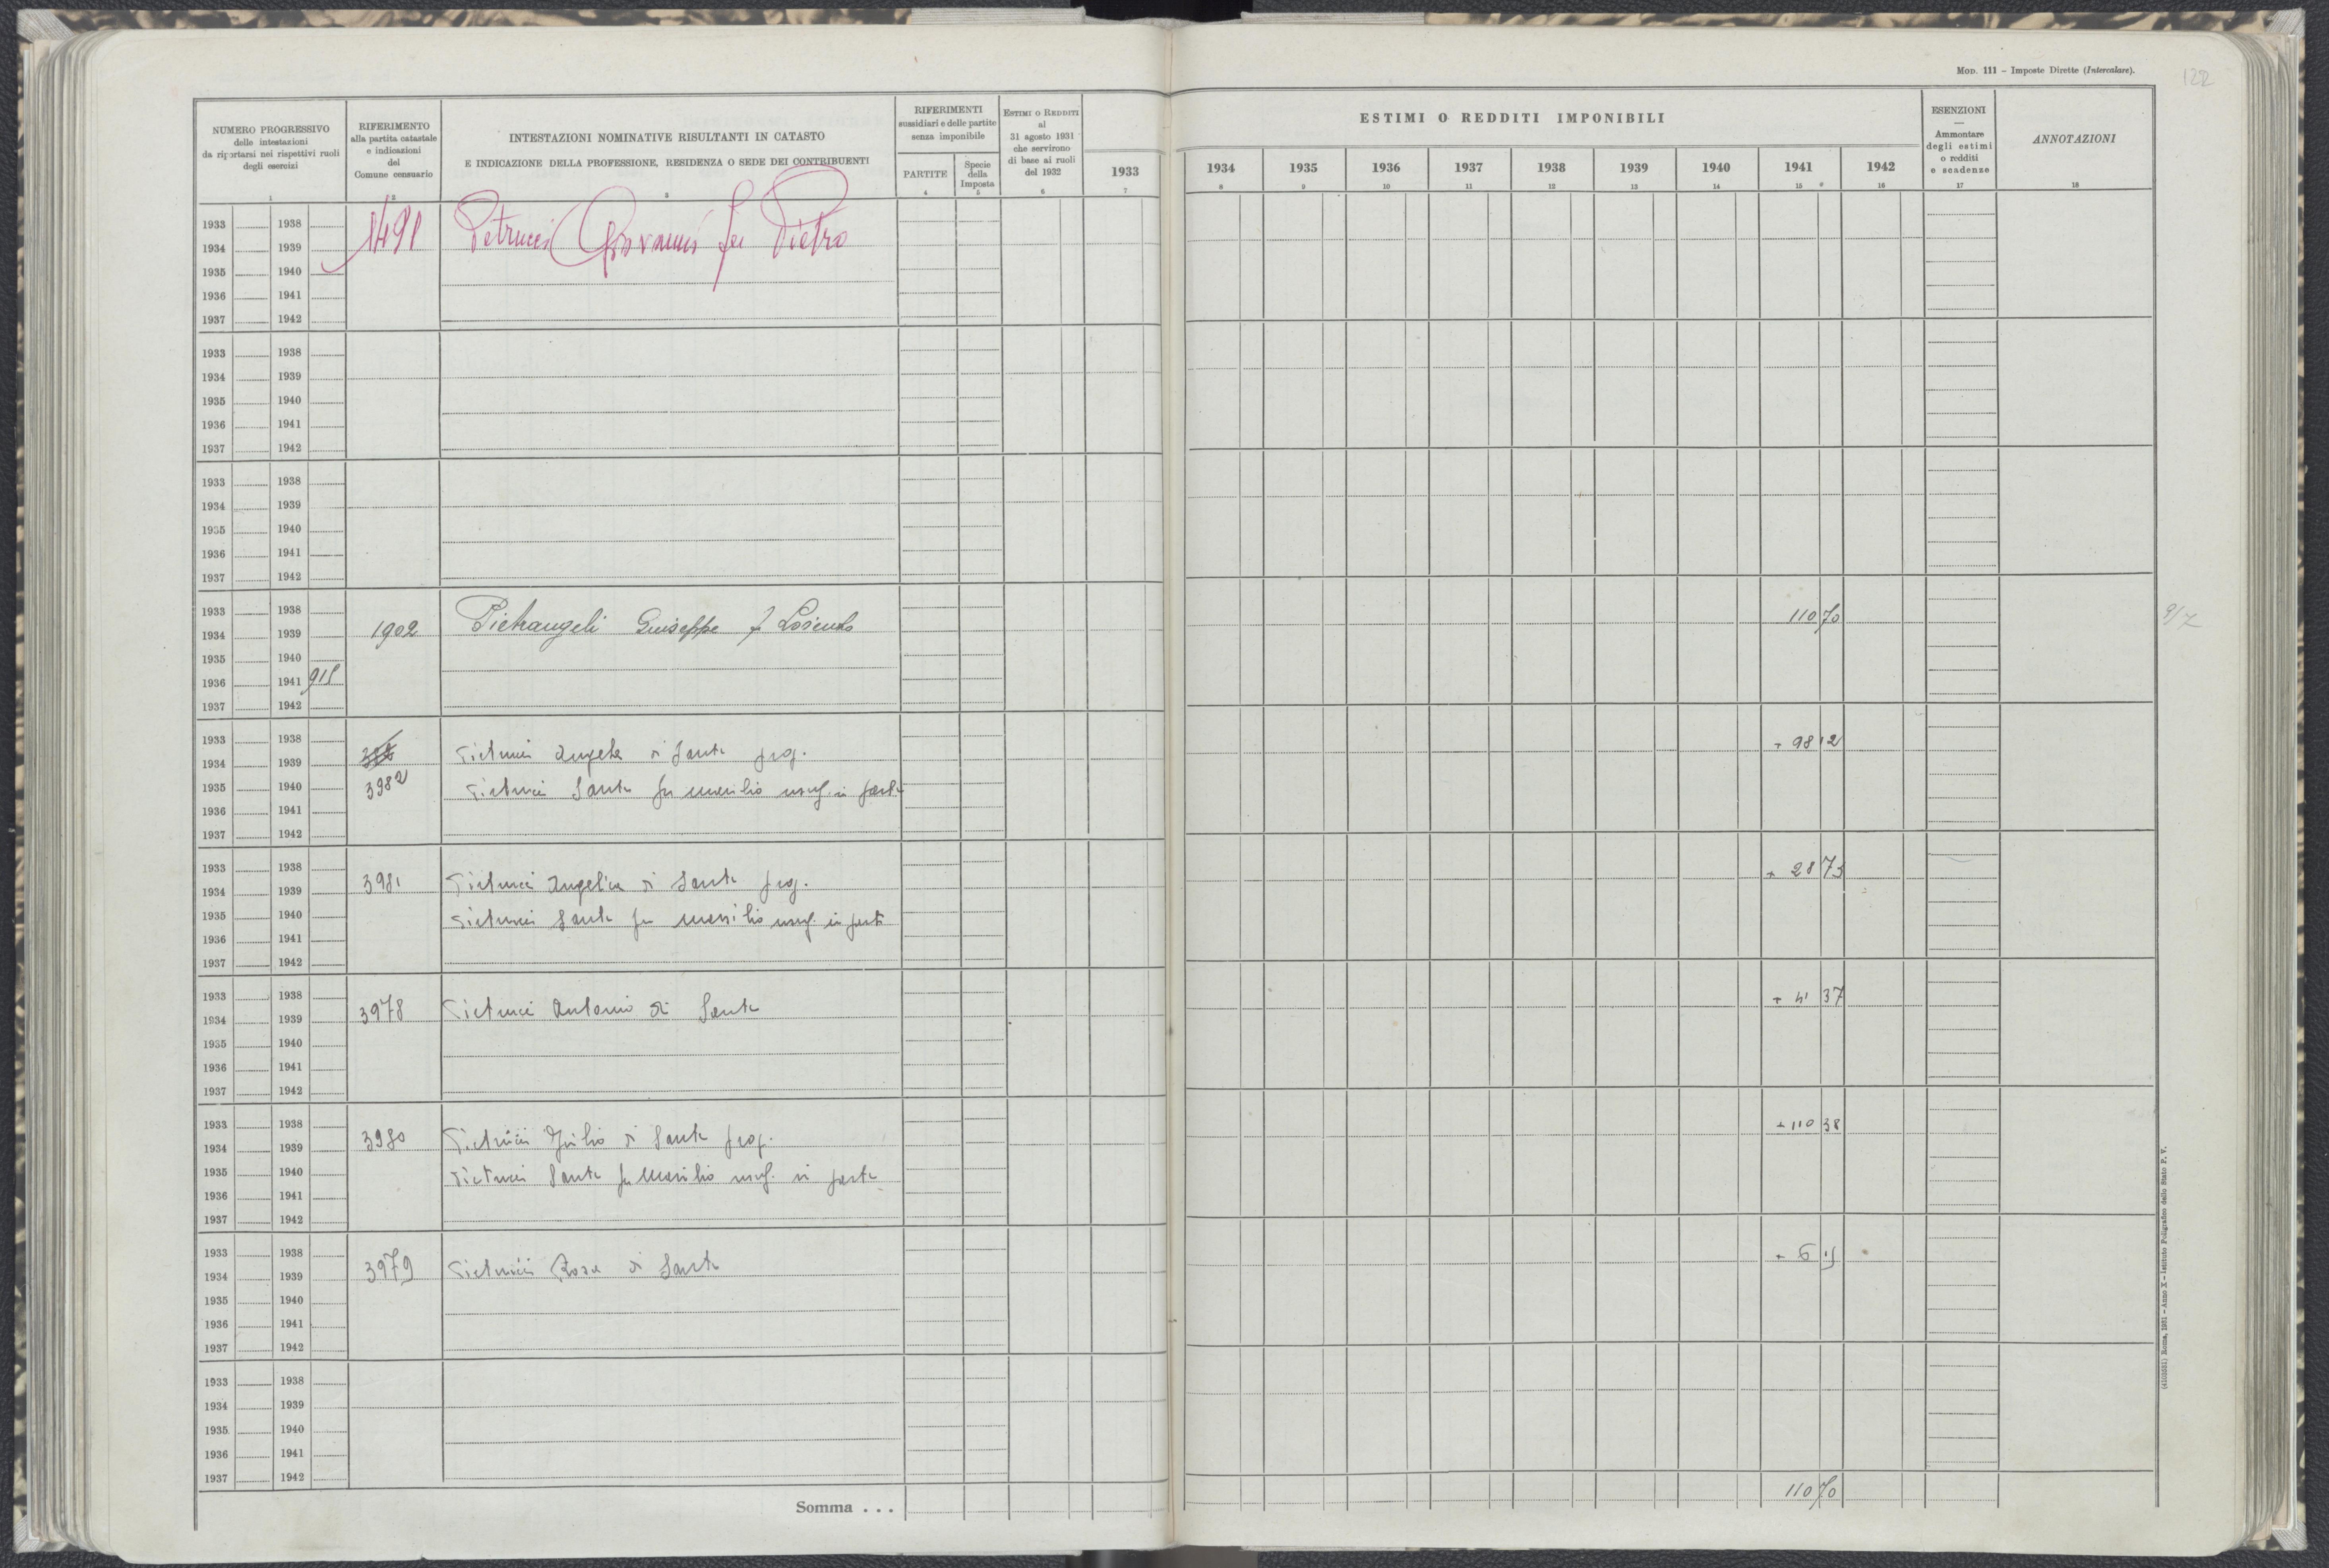 MOD. 111 – Imposte Dirette (Intercalare).
122
NUMERO PROGRESSIVO
delle intestazioni
da riportarsi nei rispettivi ruoli
degli esercizi
1
RIFERIMENTO
alla partita catastale
e indicazioni
del
Comune censuario
2
INTESTAZIONI NOMINATIVE RISULTANTI IN CATASTO
E INDICAZIONE DELLA PROFESSIONE, RESIDENZA O SEDE DEI CONTRIBUENTI
3
RIFERIMENTI
sussidiari e delle partite
senza imponibile
PARTITE
4
Specie
della
Imposta
5
ESTIMI O REDDITI
al
31 agosto 1931
che servirono
di base ai ruoli
del 1932
6
ESTIMI O REDDITI IMPONIBILI
1933 1934 1935 1936 1937 1938 1939 1940 1941 1942
7 8 9 10 11 12 13 14 15 16
ESENZIONI
—
Ammontare
degli estimi
o redditi
e scadenze
17
ANNOTAZIONI
18
1933 1938
1934 1939 1491 Petrucci Giovanni fu Pietro
1935 1940
1936 1941
1937 1942
1933 1938
1934 1939
1935 1940
1936 1941
1937 1942
1933 1938
1934 1939
1935 1940
1936 1941
1937 1942
1933 1938
1934 1939 1902 Pietrangeli Giuseppe f Lorenzo 110 70
1935 1940
1936 1941 915
1937 1942
1933 1938
1934 1939 Pietrucci Angela di Sante prop. + 98 12
1935 1940 3982 Pietrucci Sante fu Marsilio usuf. in parte
1936 1941
1937 1942
1933 1938
1934 1939 3981 Pietrucci Angelica di Sante prop. + 28 73
1935 1940 Pietrucci Sante fu Marsilio usuf. in parte
1936 1941
1937 1942
1933 1938
1934 1939 3978 Pietrucci Antonio di Sante + 41 37
1935 1940
1936 1941
1937 1942
1933 1938
1934 1939 3980 Pietrucci Giulio di Sante prop. + 110 38
1935 1940 Pietrucci Sante fu Marsilio usuf. in parte
1936 1941
1937 1942
1933 1938
1934 1939 3979 Pietrucci Rosa di Sante + 6 15
1935 1940
1936 1941
1937 1942
1933 1938
1934 1939
1935 1940
1936 1941
1937 1942
Somma . . . 110 70
Roma, 1931 – Anno X – Istituto Poligrafico dello Stato P. V.